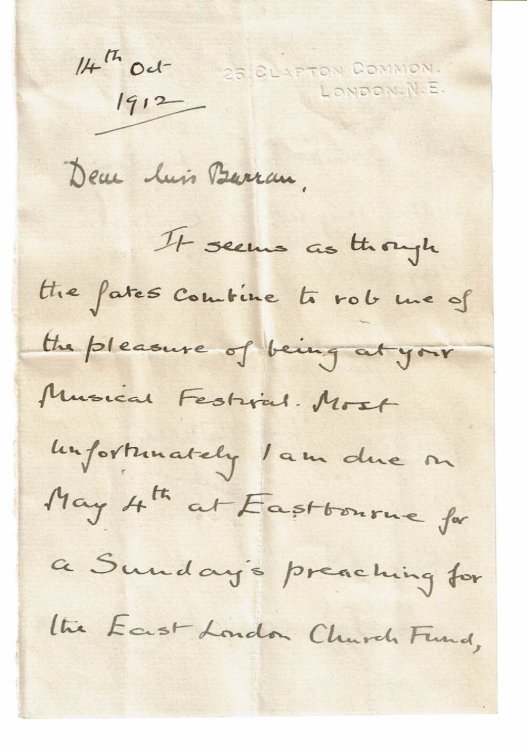 14th Oct
1912
26, CLAPTON COMMON,
LONDON. N. E.
Dear Miss Barran,
It seems as though
the fates combine to rob me of
the pleasure of being at your
Musical Festival. Most
unfortunately I am due on
May 4th at Eastbourne for
a Sunday's preaching for
the East London Church Fund,